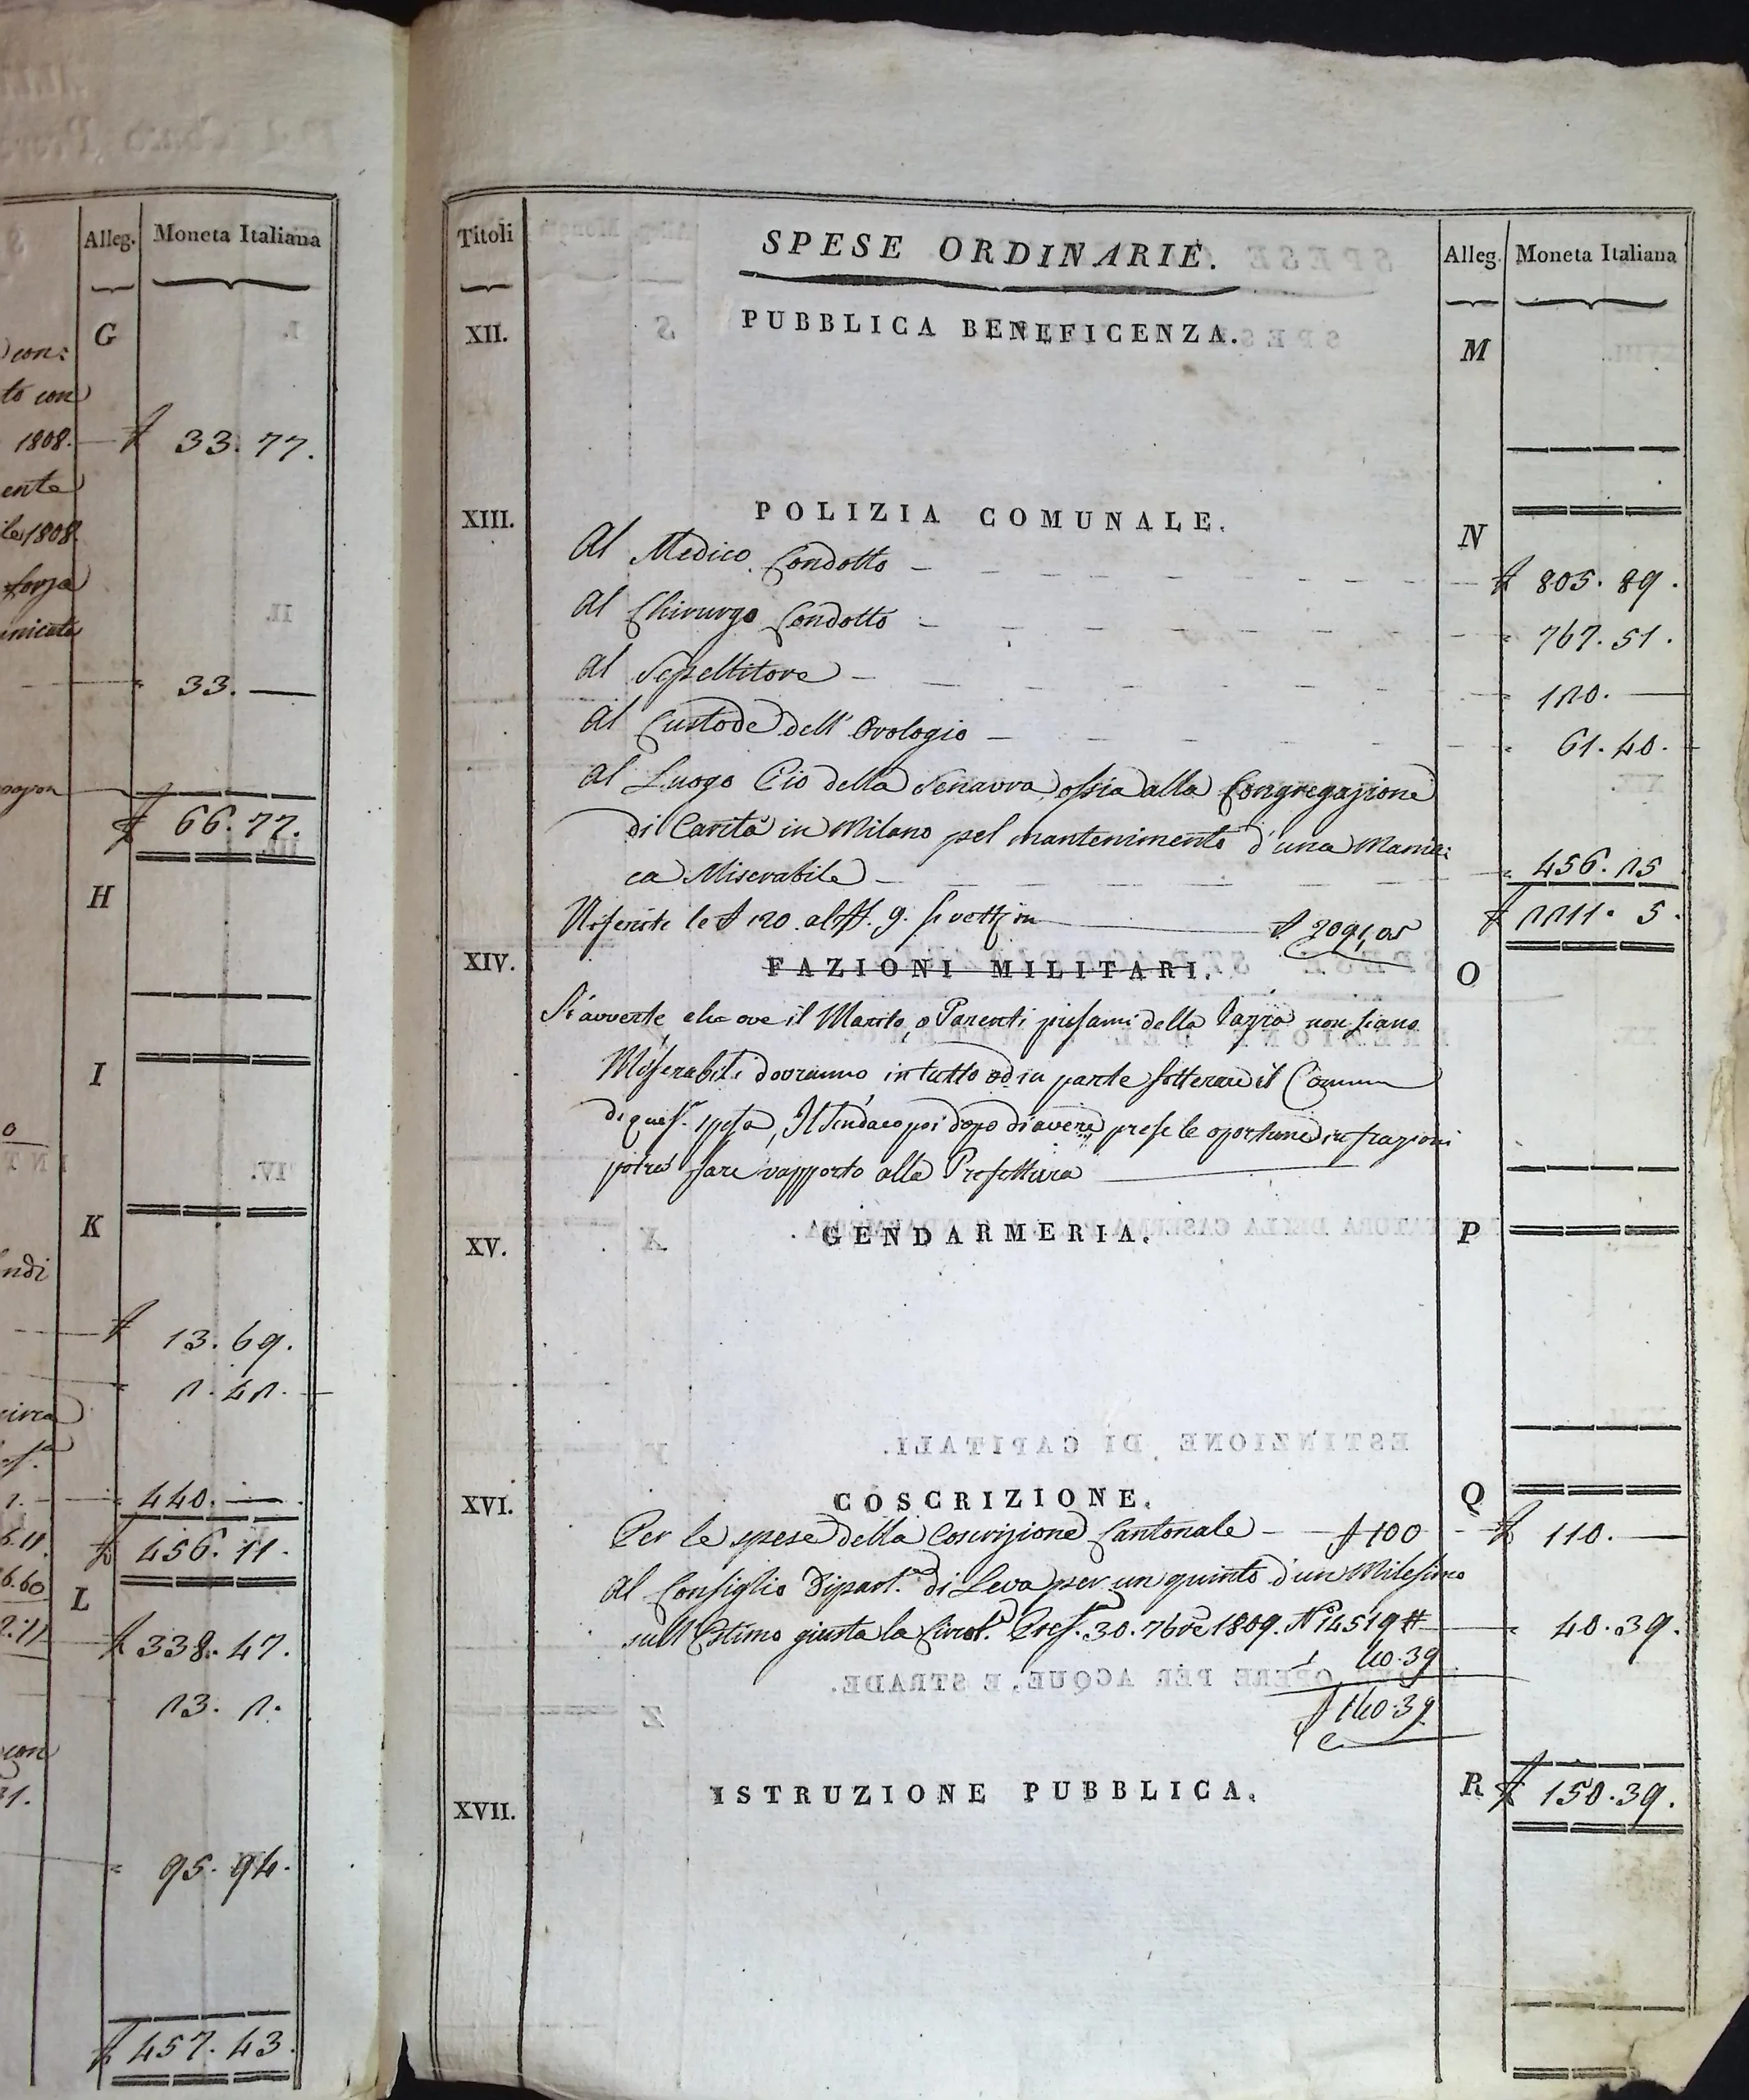 Alleg. Moneta Italiana
G
con:
to con
1808. £ 33. 77.
ente
le 1808
forza
unicata
33. —
£ 66. 77.
H
I
K
ndi
£ 13. 69.
2. 42.
circa
440. —
£ 456. 11.
L
£ 338. 47.
23. 2.
con
95. 94.
£ 457. 43.
Titoli
SPESE ORDINARIE.
Alleg. Moneta Italiana
XII. PUBBLICA BENEFICENZA. M
XIII. POLIZIA COMUNALE. N
Al Medico Condotto — £ 805. 89.
Al Chirurgo Condotto — 767. 51.
Al Sepellitore — 120. —
Al Custode dell' Orologio — 61. 40.
Al Luogo Pio della Senavra ossia alla Congregazione
di Carità in Milano pel mantenimento d'una Mania:
ca Miserabile — 456. 25
le £ 120. £ 2091,05 £ 2211. 5.
XIV. FAZIONI MILITARI. O
Si avverte, che ove il Marito, o Parenti prossimi della Pazza non siano
Miserabili dovranno in tutto od in parte il Comune
di quest. spesa, Il Sindaco poi dopo di avere prese le oportune
potrà fare rapporto alla Prefettura
XV. GENDARMERIA. P
XVI. COSCRIZIONE. Q
Per le spese della Coscrizione Cantonale — £ 100 £ 110. —
Al Consiglio Dipart.le di Leva per un quinto d'un Milesimo
sull'Estimo giusta la Circol.e Pref. 30. 7bre 1809. N.° 14519 40. 39.
40.39
£ 140.39
XVII. ISTRUZIONE PUBBLICA. R £ 150. 39.